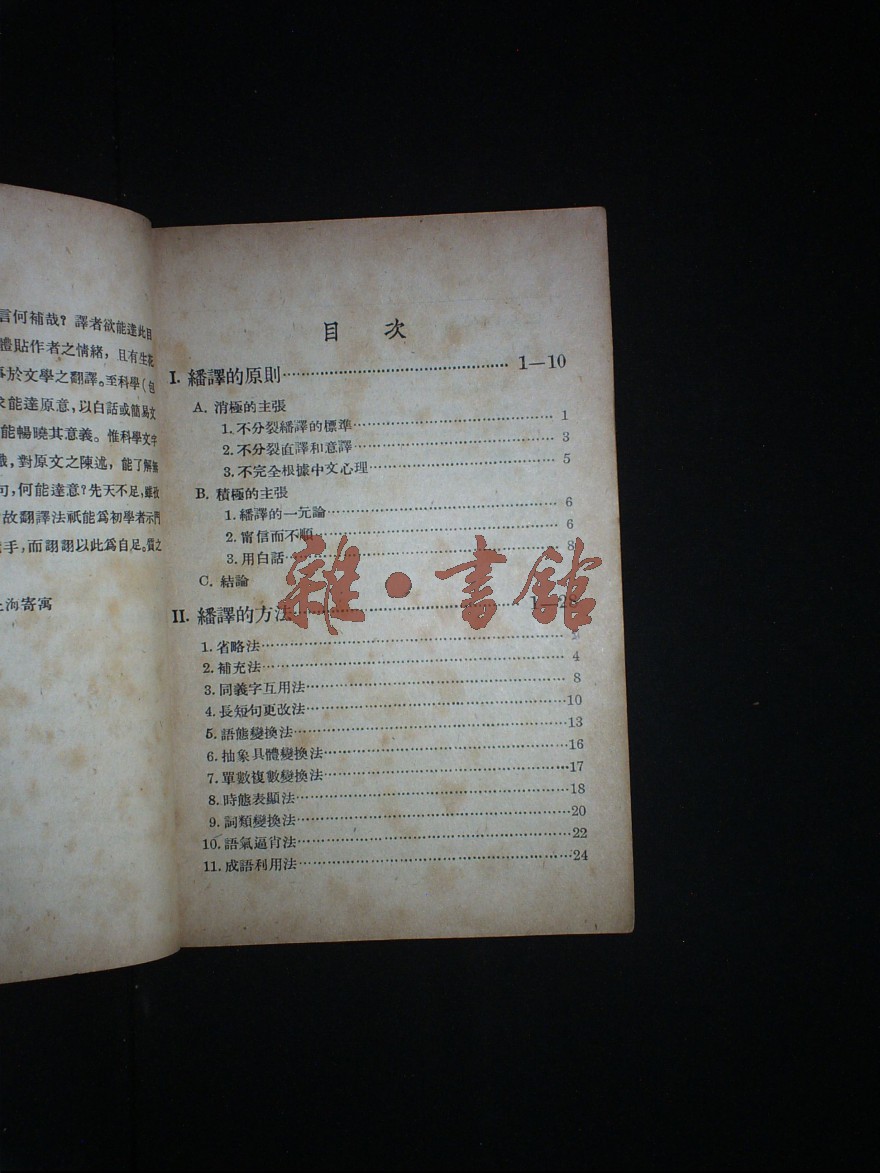 言何補哉？譯者欲能達此目
體貼作者之情緒，且有生花
於文學之翻譯。至科學（包
能達原意，以白話或簡易文
能暢曉其意義。惟科學文字
對原文之陳述，能了解無
句，何能達意？先天不足，雖孜
故翻譯法祇能爲初學者示門
手，而詡詡以此爲自足。質之
海寄寓
目 次
I. 繙譯的原則 1—10
A. 消極的主張
1. 不分裂繙譯的標準 1
2. 不分裂直譯和意譯 3
3. 不完全根據中文心理 5
B. 積極的主張
1. 繙譯的一元論 6
2. 甯信而不順 6
3. 用白話 8
C. 結論
II. 繙譯的方法 1—28
1. 省略法
2. 補充法 4
3. 同義字互用法 8
4. 長短句更改法 10
5. 語態變換法 13
6. 抽象具體變換法 16
7. 單數複數變換法 17
8. 時態表顯法 18
9. 詞類變換法 20
10. 語氣逼肖法 22
11. 成語利用法 24
雜·書館